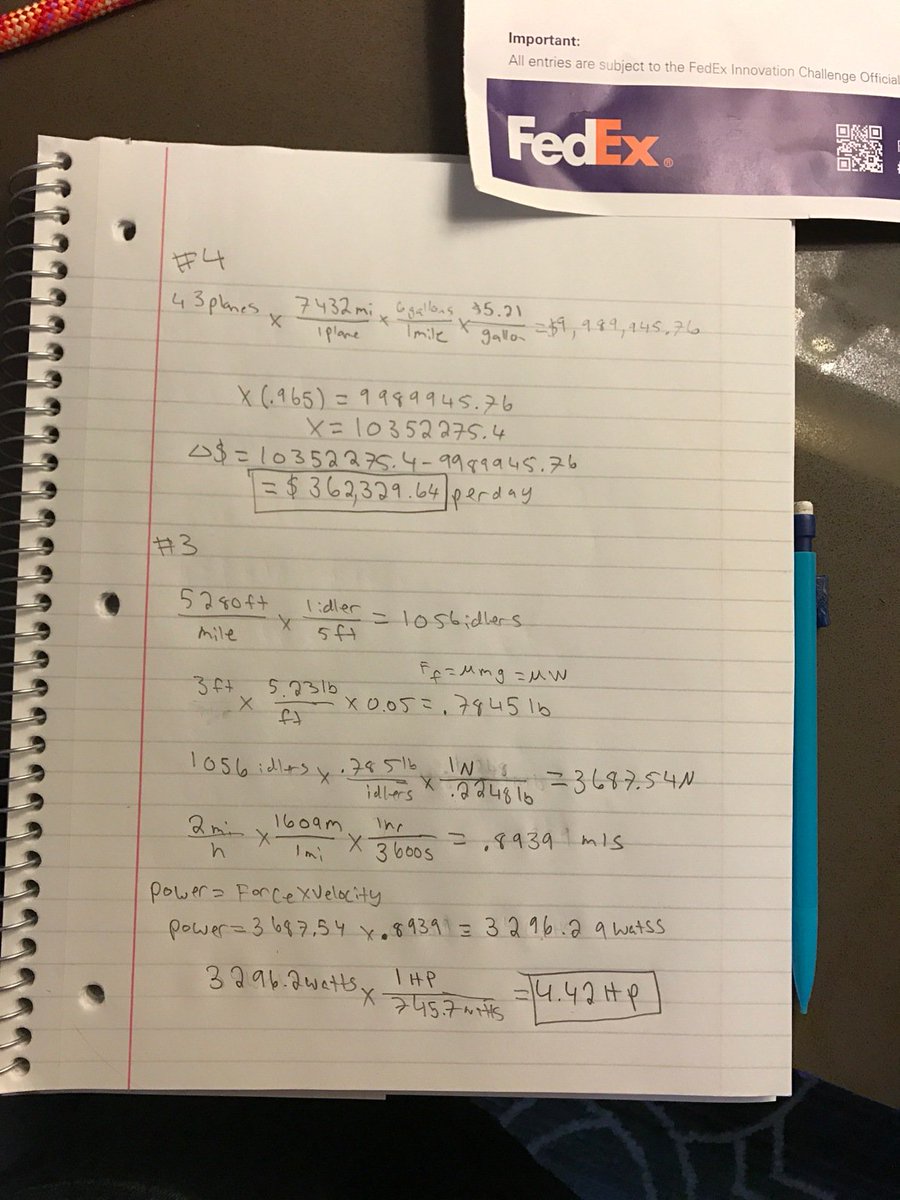 Important:
All entries are subject to the FedEx Innovation Challenge Official
FedEx®
#4
43 planes x 7432mi/1plane x 6gallons/1mile x $5.21/gallon = $9,989,945.76
X(.965) = 9989945.76
X = 10352275.4
Δ$ = 10352275.4 - 9989945.76
= $362,329.64 per day
#3
5280ft/mile x 1idler/5ft = 1056idlers
Ff = μmg = μW
3ft x 5.23lb/ft x 0.05 = .7845lb
1056 idlers x .785lb/idlers x 1N/.2248lb = 3687.54N
2mi/h x 1609m/1mi x 1hr/3600s = .8939 m/s
power = Force x Velocity
power = 3687.54 x .8939 = 3296.29 watss
3296.2watts x 1HP/745.7watts = 4.42HP